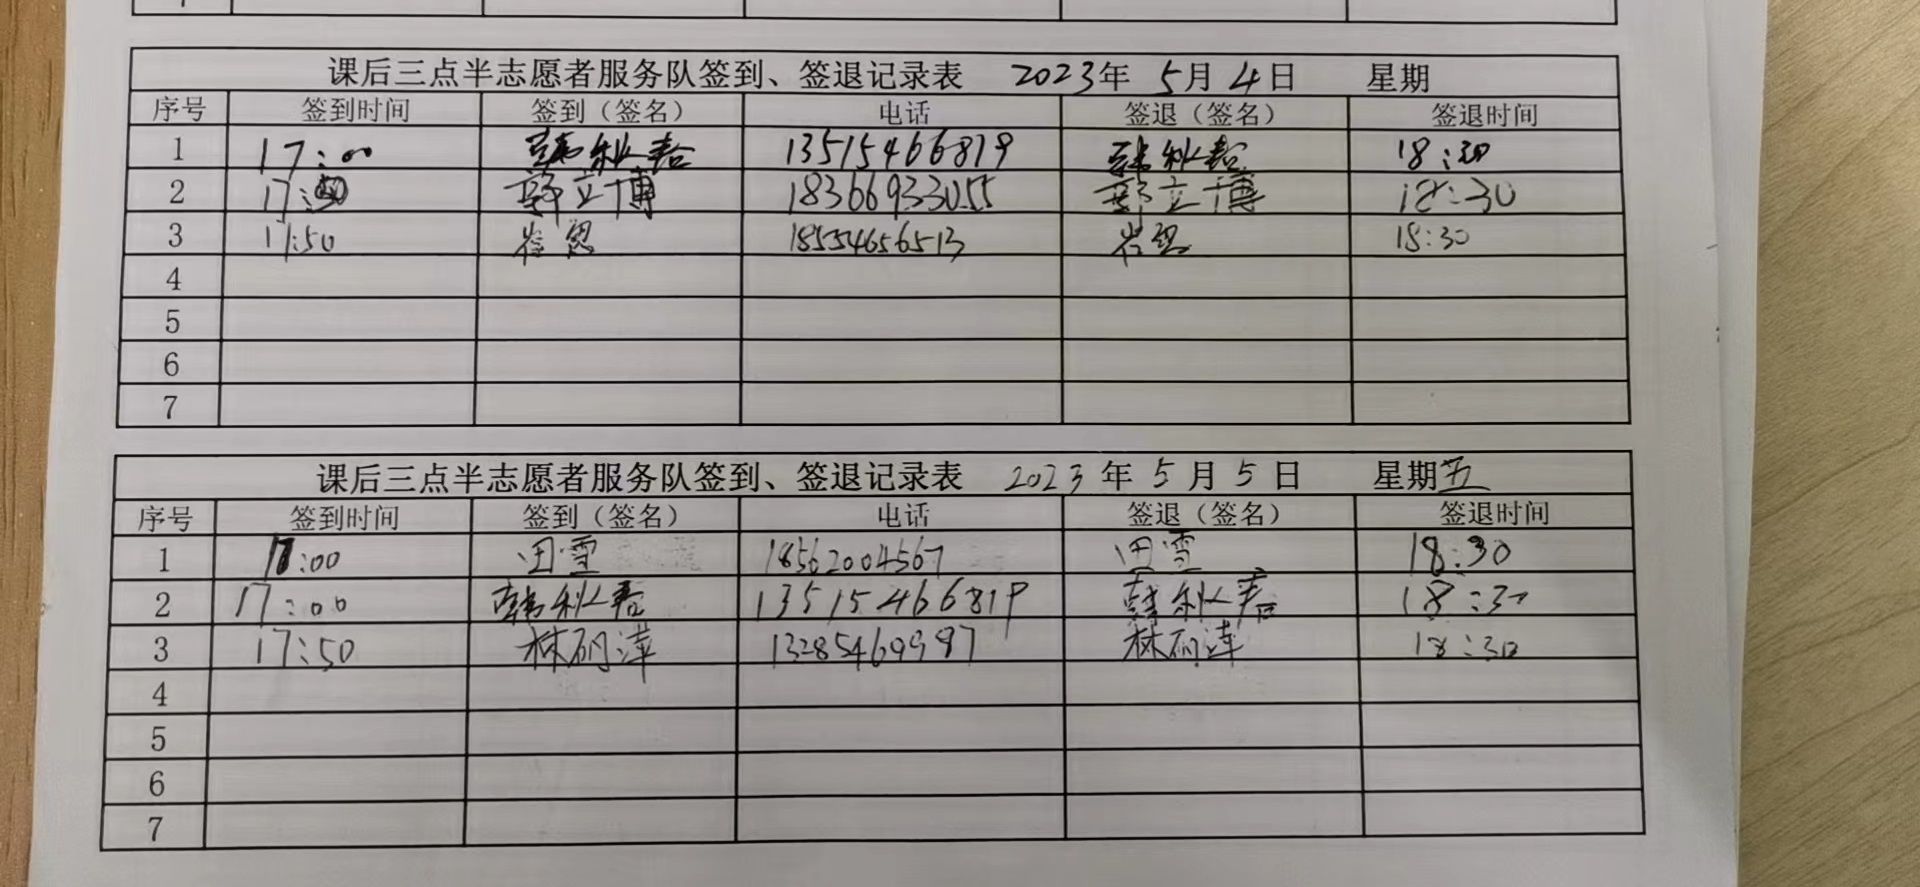 课后三点半志愿者服务队签到、签退记录表 2023年 5月 4日 星期
序号 签到时间 签到（签名） 电话 签退（签名） 签退时间
1 17:00 韩秋君 13515466819 韩秋君 18:30
2 17:50 郭立博 18366933055 郭立博 18:30
3 17:50 崔 18554656513 崔 18:30
4
5
6
7
课后三点半志愿者服务队签到、签退记录表 2023 年 5 月 5 日 星期五
序号 签到时间 签到（签名） 电话 签退（签名） 签退时间
1 17:00 田雪 18562004567 田雪 18:30
2 17:00 韩秋君 13515466819 韩秋君 18:30
3 17:50 林 萍 13285469987 林 萍 18:30
4
5
6
7